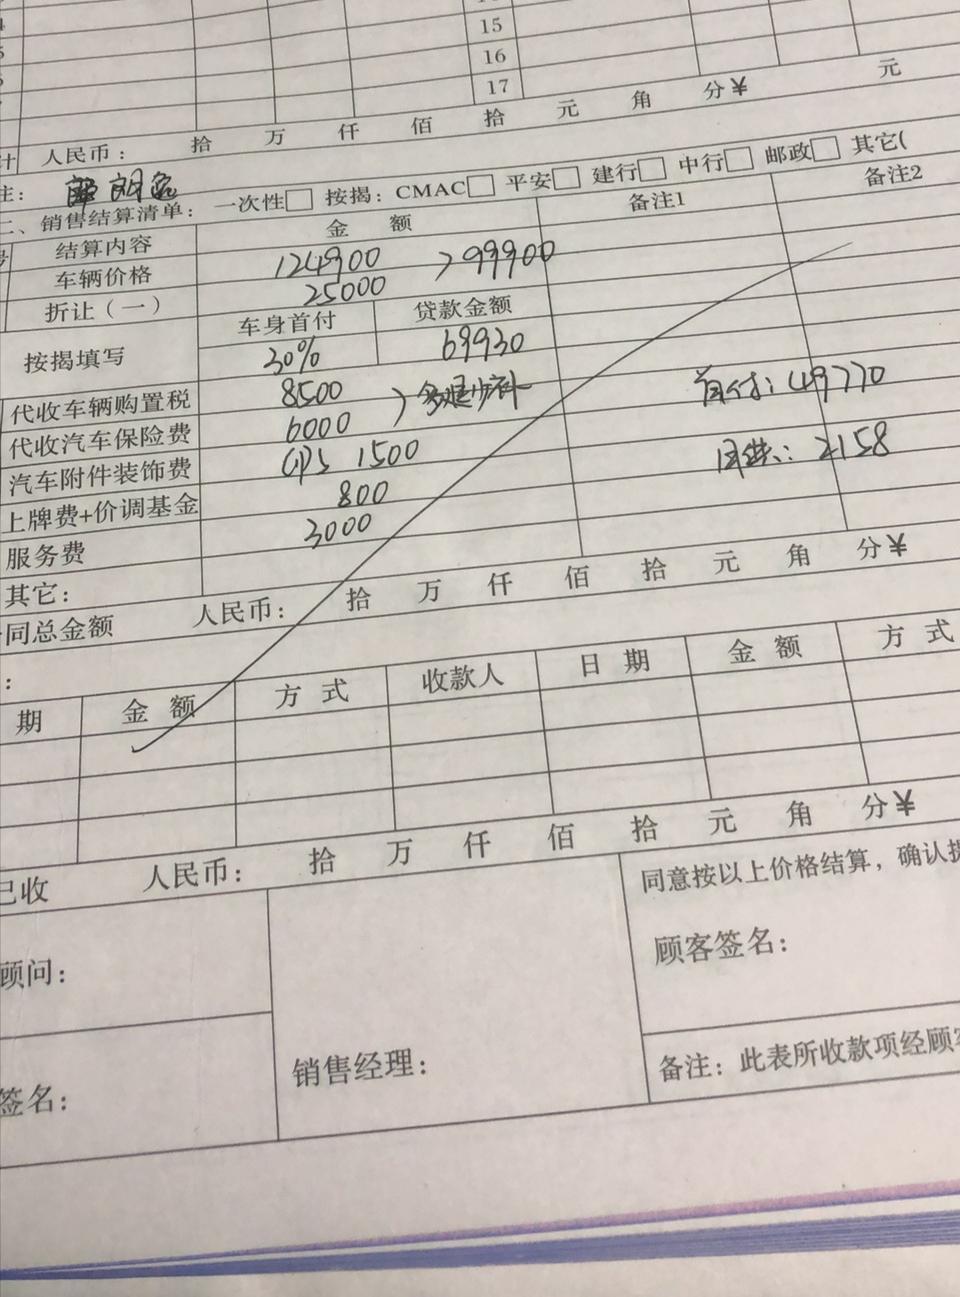 15
16
17
人民币： 拾 万 仟 佰 拾 元 角 分¥ 元
计
注： 朗逸
二、销售结算清单： 一次性□ 按揭：CMAC□ 平安□ 建行□ 中行□ 邮政□ 其它(
结算内容 金 额 备注1 备注2
车辆价格 124900 >99900
折让（一） 25000
按揭填写 车身首付 贷款金额
30% 69930
代收车辆购置税 8500 首付：49770
代收汽车保险费 6000 >多退少补
汽车附件装饰费 GPS 1500 月供：2158
上牌费+价调基金 800
服务费 3000
其它：
同总金额 人民币： 拾 万 仟 佰 拾 元 角 分¥
：
期 金 额 方 式 收款人 日 期 金 额 方 式
已收 人民币： 拾 万 仟 佰 拾 元 角 分¥
顾问：
签名：
销售经理：
同意按以上价格结算，确认提
顾客签名：
备注：此表所收款项经顾客